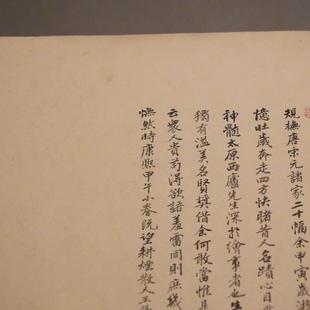 規橅唐宋元諸家二十幅余甲寅歲游
憶壯歲奔走四方快睹昔人名蹟心目
神髓太原西廬先生深於繪事者也生
獨有溢美名賢奬借余何敢當惟是
云眾人貴苟得欲語羞雷同則庶幾
憮然時康熙甲午小春既望耕煙散人王